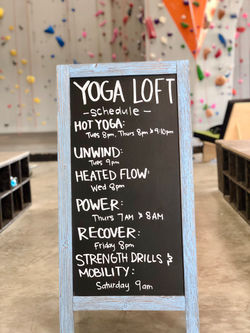 YOGA LOFT
-schedule-
HOT YOGA:
Tues 8pm, Thurs 8pm & 9:10pm
UNWIND:
Tues 9pm
HEATED FLOW:
Wed 8pm
POWER:
Thurs 7AM & 8AM
RECOVER:
Friday 8pm
STRENGTH DRILLS &
MOBILITY:
Saturday 9am